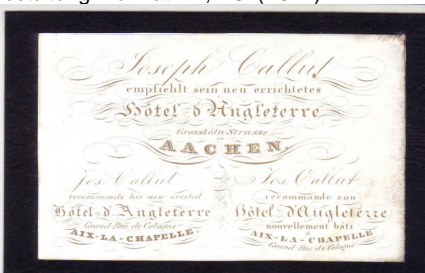 Joseph Callut
empfiehlt sein neu errichtetes
Hôtel d'Angleterre
Grosskóln-Strasse
in
AACHEN.
Jos. Callut
recommends his new erected
Hôtel-d'Angleterre
Grand Rue de Cologne
AIX-LA-CHAPELLE.
Jos. Callut
recommande son
Hôtel d'Angleterre
nouvellement bâti
à
AIX-LA-CHAPELLE
Grand Rue de Cologne